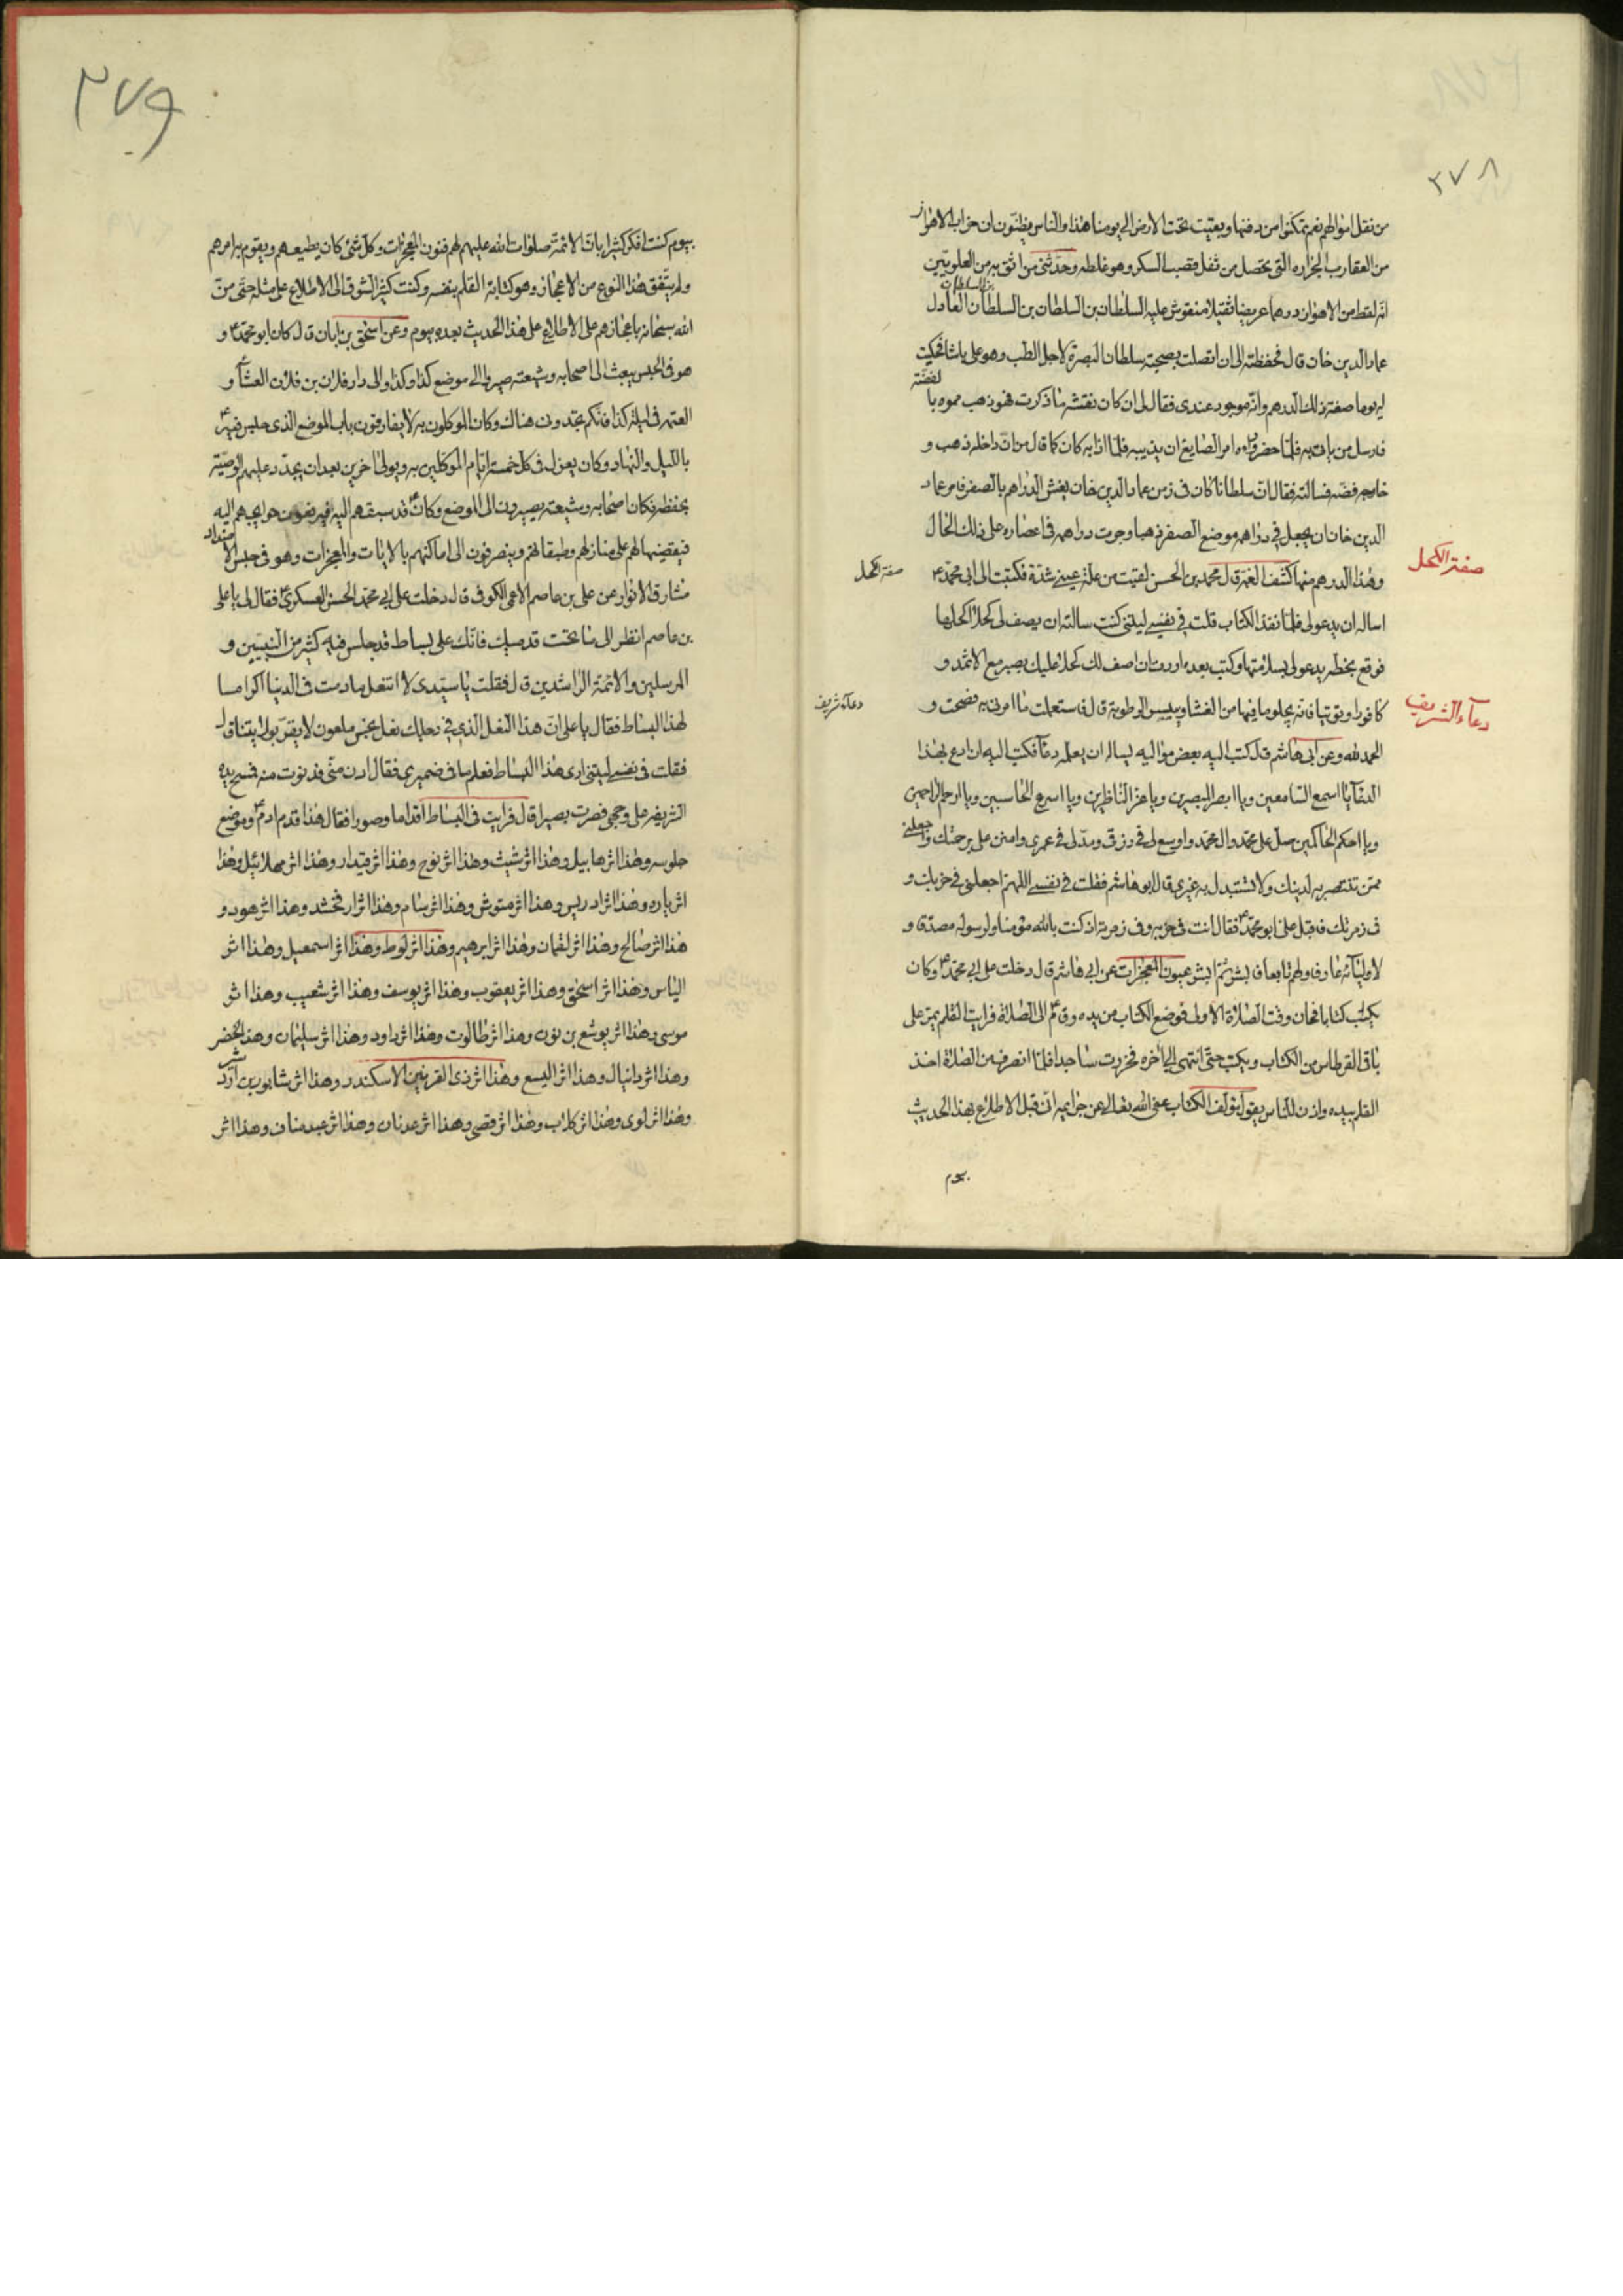 ٢٧٨
من نقل اموالهم نعم تمكنوا من دفنها وبقيت تحت الارض الى يومنا هذا والناس يظنون ان خراب الاهواز
من العقارب الجراره التى تحصل من ثفل قصب السكر وهو غلط وحدثنى من اثق به من العلويين
انه لقط من الاهواز درهما عريضا ثقيلا منقوش عليه السلطان بن السلطان بن السلطان العادل
بن السلطان
عماد الدين خان قال فحفظته الى ان اتصلت بصحبة سلطان البصرة لاجل الطب وهو على پاشا فحكيت
له يوما صفة ذلك الدرهم وانه موجود عندى فقال لى ان كان نقشه ما ذكرت فهو ذهب مموه با
لفضة
فارسل من ياتى به فلما حضر وراه امر الصايغ ان يذيبه فلما اذابه كان كما قال من ان داخله ذهب و
خارجه فضه فسالته فقال ان سلطانا كان فى زمن عماد الدين خان يغش الدراهم بالصفر فامر عماد
الدين خان ان يجعل فى دراهمه موضع الصفر ذهبا وجرت دراهمه فى اعصاره على ذلك الحال
وهذا الدرهم منها كشف الغمة قال محمد بن الحسن لقيت من علة عينى شدة فكتبت الى ابى محمد ع
صفة الكحل
صفة الكحل
اساله ان يدعو لى فلما نفذ الكتاب قلت فى نفسى ليتنى كنت سالته ان يصف لى كحلا اكحلها
فوقع بخطه يدعو لى بسلامتها وكتب بعده اردت ان اصف لك كحلا عليك بصبر مع الاثمد و
كافورا وتوتيا فانه يجلو ما فيها من الغشا وييبس الرطوبة قال فاستعملت ما امرنى به فصحت و
دعاء الشريف
دعاء شريف
الحمد لله وعن ابى هاشم قال كتب اليه بعض مواليه يساله ان يعلمه دعاء فكتب اليه ان ادع بهذا
الدعاء يا اسمع السامعين ويا ابصر المبصرين ويا عز الناظرين ويا اسرع الحاسبين ويا ارحم الراحمين
ويا احكم الحاكمين صل على محمد وال محمد واوسع لى فى رزقى ومد لى فى عمرى وامنن على برحمتك واجعلنى
ممن تنتصر به لدينك ولا تستبدل به غيرى قال ابو هاشم فقلت فى نفسى اللهم اجعلنى فى حزبك و
فى زمرتك فاقبل على ابو محمد ع فقال انت فى حزبه وفى زمرته اذ كنت بالله مؤمنا ولرسوله مصدقا و
لاوليائه عارفا ولهم تابعا فابشر ثم ابشر عيون المعجزات عن ابى هاشم قال دخلت على ابى محمد ع وكان
يكتب كتابا فحان وقت الصلاة الاولى فوضع الكتاب من يده وقام الى الصلاة فرايت القلم يمر على
باقى القرطاس من الكتاب ويكتب حتى انتهى الى اخره فخررت ساجدا فلما انصرف من الصلاة اخذ
القلم بيده واذن للناس يقول مؤلف الكتاب عفى الله تعالى عن جرايمه انى قبل الاطلاع بهذا الحديث
بيوم
٢٧٩
بيوم كنت افكر كثيرا بان الائمة صلوات الله عليهم لهم فنون المعجزات وكل شئ كان يطيعهم ويقوم بامرهم
ولم يتفق هذا النوع من الاعجاز وهو كتابة القلم بنفسه وكنت كثير الشوق الى الاطلاع على مثله حتى من
الله سبحانه باعجازهم على الاطلاع على هذا الحديث بعده بيوم وعن اسحق بن ابان قال كان ابو محمد ع و
هو فى الحبس يبعث الى اصحابه وشيعته صيروا الى موضع كذا وكذا والى دار فلان بن فلان العشاء و
العتمه فى ليلة كذا فانكم تجدونى هناك وكان الموكلون به لا يفارقون باب الموضع الذى حبس فيه ع
بالليل والنهار وكان يعزل فى كل خمسة ايام الموكلين به ويولى اخرين بعد ان يجدد عليهم الوصية
بحفظه فكان اصحابه وشيعته يصيرون الى الموضع وكان ع قد سبقهم اليه فيرفعون حوايجهم اليه
فيقضيها لهم على منازلهم وطبقاتهم وينصرفون الى اماكنهم بالايات والمعجزات وهو فى حبس الاضداد
مشارق الانوار عن على بن عاصم الاعمى الكوفى قال دخلت على ابى محمد الحسن العسكرى ع فقال لى يا على
بن عاصم انظر الى ما تحت قدميك فانك على بساط قد جلس فيه كثير من النبيين و
المرسلين والائمة الراشدين قال فقلت يا سيدى لا انتعل ما دمت فى الدنيا اكراما
لهذا البساط فقال يا على ان هذا النعل الذى فى رجلك نعل نجس ملعون لا يقر بولايتنا قال
فقلت فى نفسى ليتنى ارى هذا البساط فعلم ما فى ضميرى فقال ادن منى فدنوت منه فمسح يده
الشريفه على وجهى فصرت بصيرا قال فرايت فى البساط اقداما وصورا فقال هذا قدم ادم ع وموضع
جلوسه وهذا اثر هابيل وهذا اثر شيث وهذا اثر نوح وهذا اثر قيدار وهذا اثر مهلائيل وهذا
اثر ياره وهذا اثر ادريس وهذا اثر متوشلخ وهذا اثر سام وهذا اثر ارفخشد وهذا اثر هود و
هذا اثر صالح وهذا اثر لقمان وهذا اثر ابرهيم وهذا اثر لوط وهذا اثر اسمعيل وهذا اثر
الياس وهذا اثر اسحق وهذا اثر يعقوب وهذا اثر يوسف وهذا اثر شعيب وهذا اثر
موسى وهذا اثر يوشع بن نون وهذا اثر طالوت وهذا اثر داود وهذا اثر سليمان وهذا الخضر
وهذا اثر دانيال وهذا اثر اليسع وهذا اثر ذى القرنين الاسكندر وهذا اثر شابور بن اردشير
وهذا اثر لوى وهذا اثر كلاب وهذا اثر قصى وهذا اثر عدنان وهذا اثر عبد مناف وهذا اثر